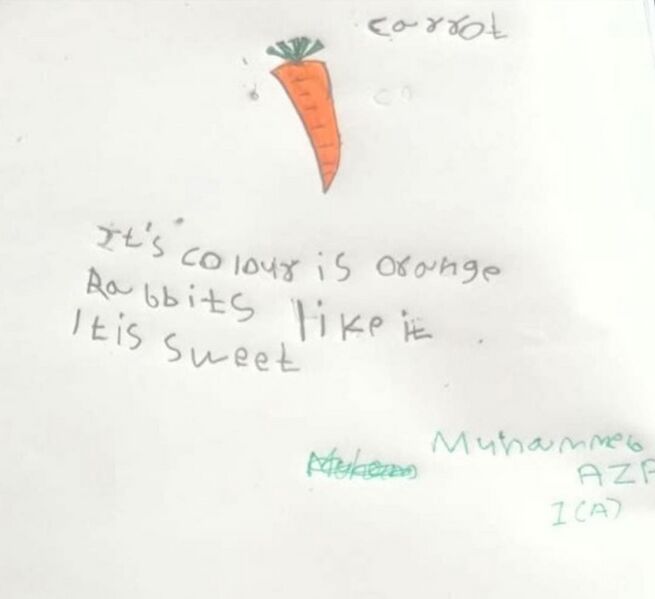 carrot
It's colour is orange
Rabbits like it .
It is sweet
Muhammed
AZA
I (A)